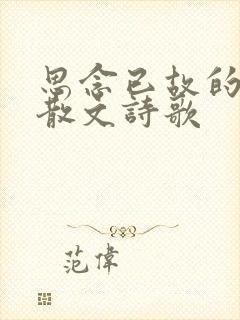 思念已故的
散文詩歌
范偉